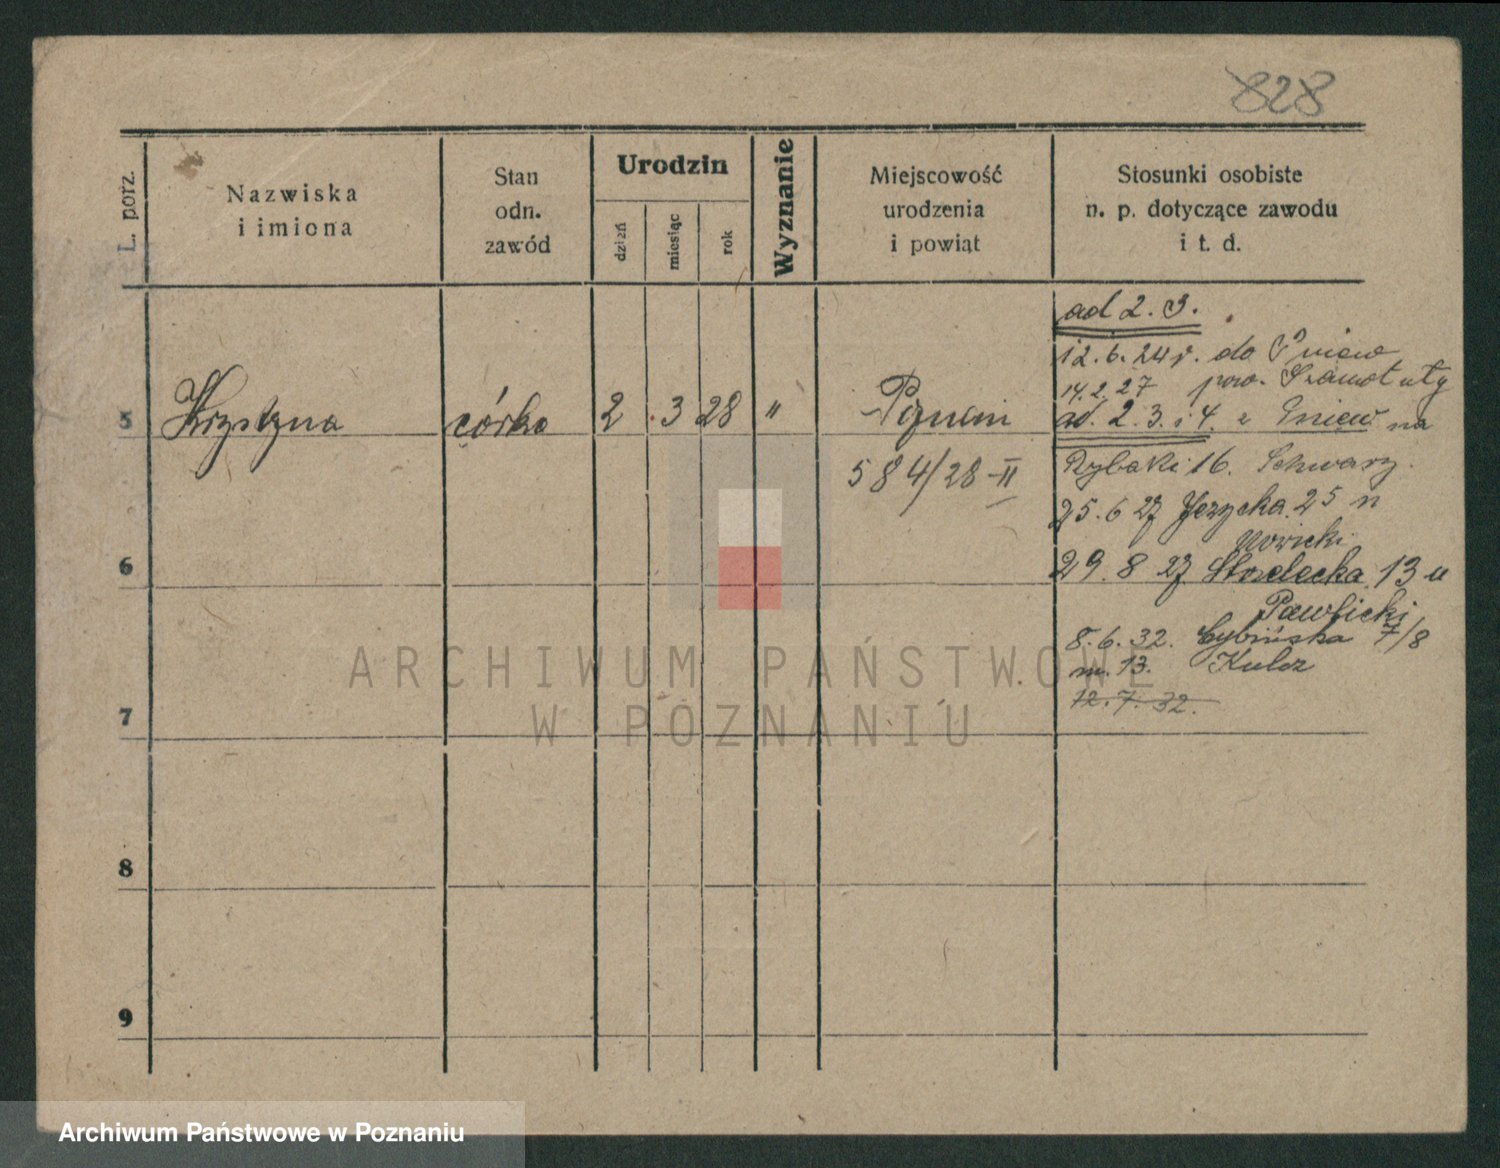 828
L. porz.
Nazwiska
i imiona
Stan
odn.
zawód
Urodzin
dzień
miesiąc
rok
Wyznanie
Miejscowość
urodzenia
i powiąt
Stosunki osobiste
n. p. dotyczące zawodu
i t. d.
ad 2. 3.
12.6.24 r. do Pniew
14.2.27 pow. Szamotuły
5 Krystyna córka 2 . 3 28 " Poznań
ad. 2. 3. i 4. z Pniew na
584/28-II
Rybaki 16. Schwarz.
25.6 27 Jeżycka 25 u
Nowicki
6
29.8 27 Strzelecka 13 u
Pawlicki
8.6.32. Cybińska 7/8
m. 13. Kulcz
12.7.32.
7
8
9
ARCHIWUM PAŃSTWOWE
W POZNANIU
Archiwum Państwowe w Poznaniu